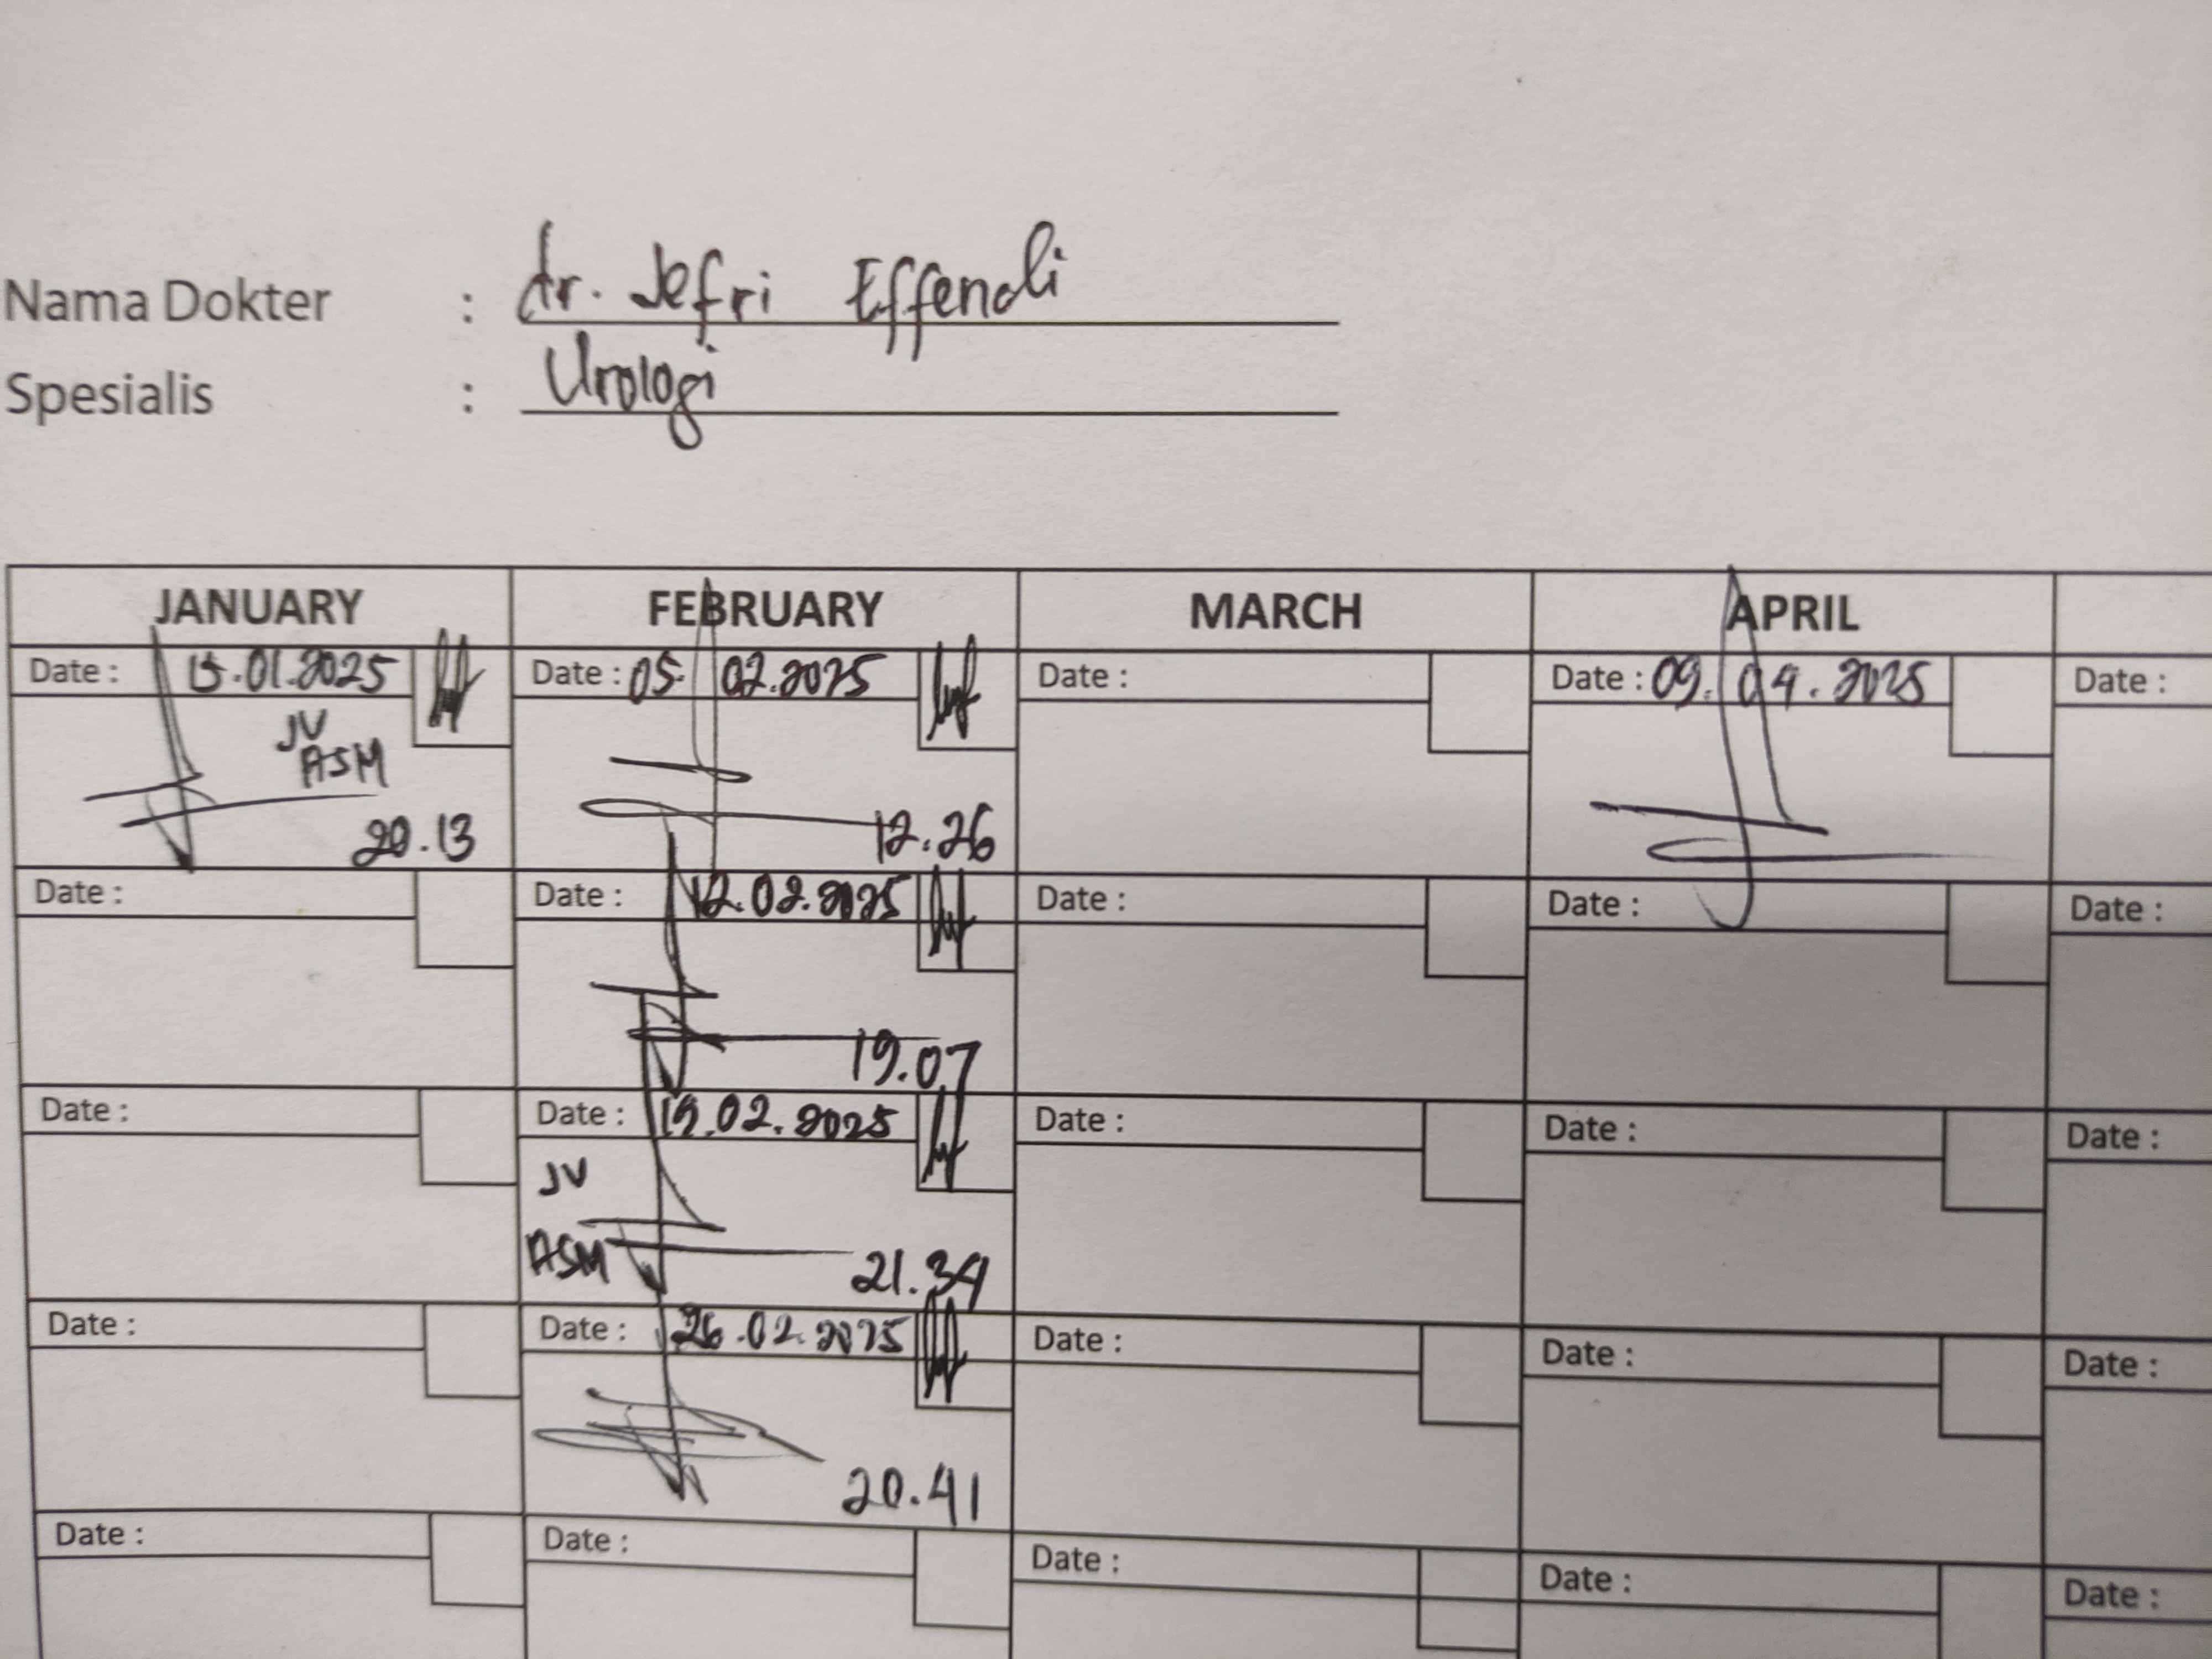 Nama Dokter : dr. Jefri Effendi
Spesialis : Urologi
JANUARY FEBRUARY MARCH APRIL
Date : 15.01.2025 Date : 05.02.2025 Date : Date : 09.04.2025 Date :
JV
ASM
20.13 12.26
Date : Date : 12.02.2025 Date : Date : Date :
19.07
Date : Date : 19.02.2025 Date : Date : Date :
JV
ASM 21.34
Date : Date : 26.02.2025 Date : Date : Date :
20.41
Date : Date : Date : Date : Date :